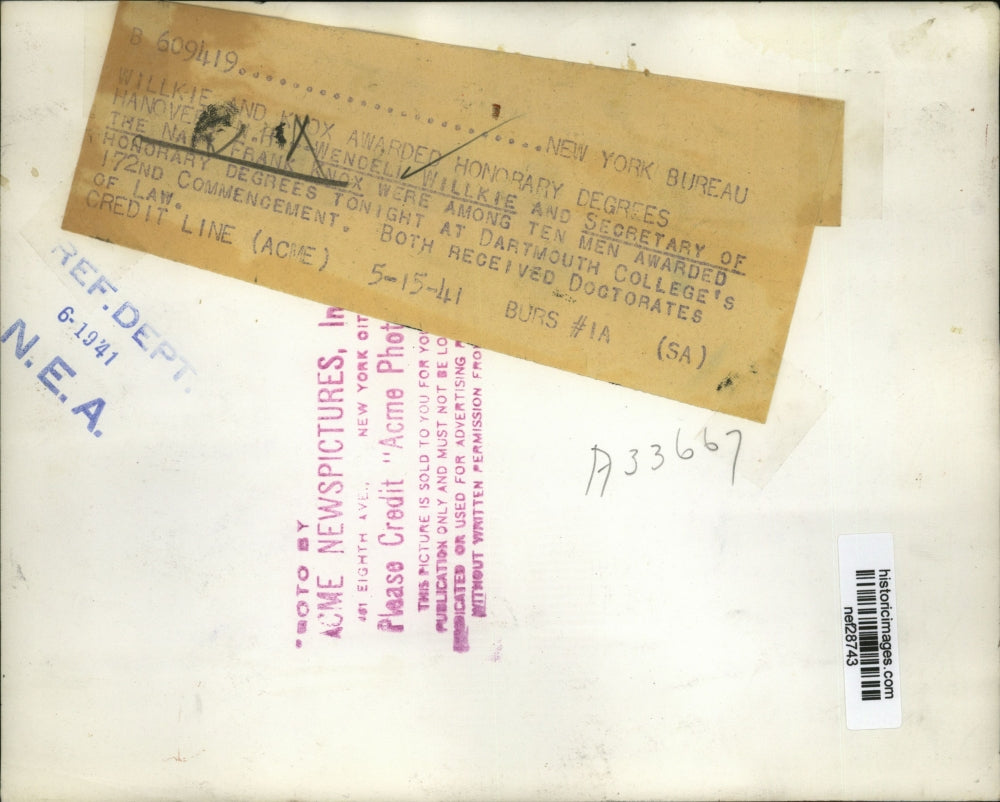 B 609419.......................NEW YORK BUREAU
WILLKIE AND KNOX AWARDED HONORARY DEGREES
HANOVER, N.H.--WENDELL WILLKIE AND SECRETARY OF
THE NAVY FRANK KNOX WERE AMONG TEN MEN AWARDED
HONORARY DEGREES TONIGHT AT DARTMOUTH COLLEGE'S
172ND COMMENCEMENT. BOTH RECEIVED DOCTORATES
OF LAW.
CREDIT LINE (ACME) 5-15-41 BURS #1A (SA)
REF. DEPT.
6-1941
N.E.A.
PHOTO BY
ACME NEWSPICTURES, In
461 EIGHTH AVE., NEW YORK CIT
Please Credit "Acme Phot
THIS PICTURE IS SOLD TO YOU FOR YOU
PUBLICATION ONLY AND MUST NOT BE LO
SYNDICATED OR USED FOR ADVERTISING
WITHOUT WRITTEN PERMISSION FRO
A33667
historicimages.com
nef28743